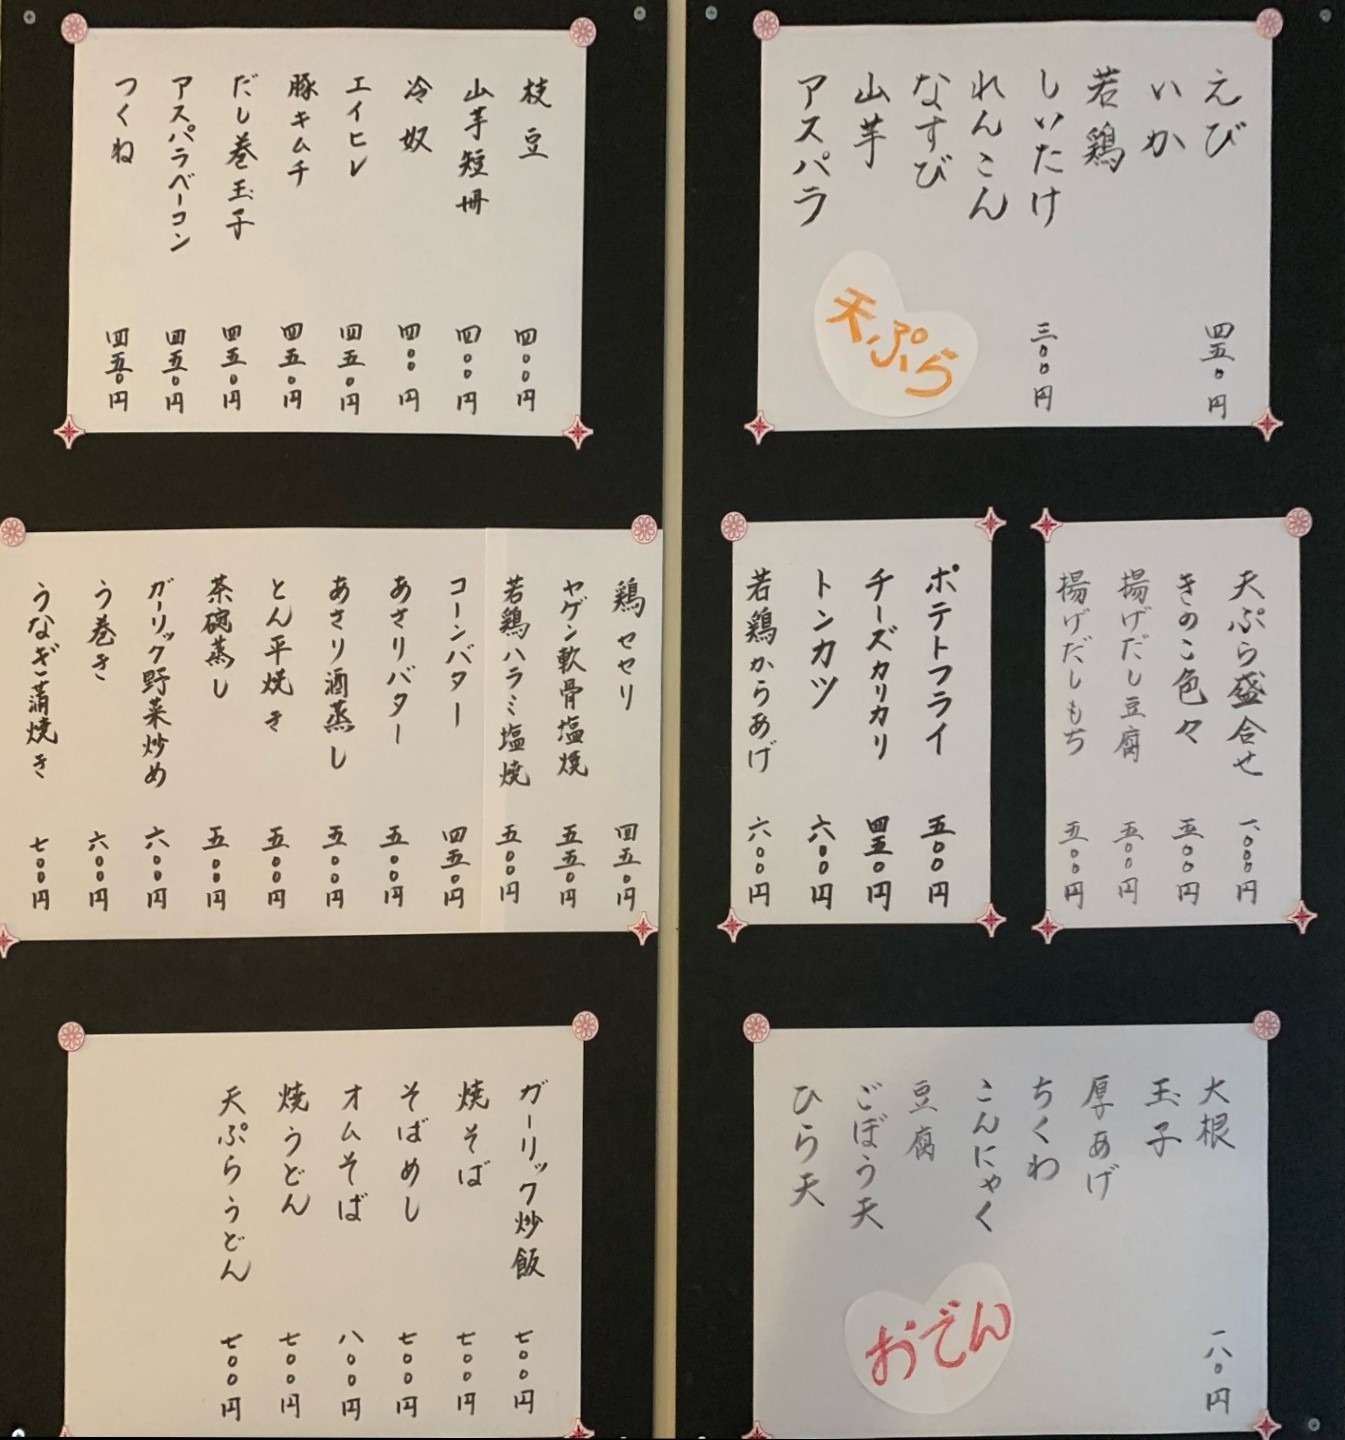 えび 四五〇円
いか
若鶏
しいたけ 三〇〇円
れんこん
なすび
山芋
アスパラ
天ぷら
枝豆 四〇〇円
山芋短冊 四〇〇円
冷奴 四〇〇円
エイヒレ 四五〇円
豚キムチ 四五〇円
だし巻玉子 四五〇円
アスパラベーコン 四五〇円
つくね 四五〇円
天ぷら盛合せ 一〇〇〇円
きのこ色々 五〇〇円
揚げだし豆腐 五〇〇円
揚げだしもち 五〇〇円
ポテトフライ 五〇〇円
チーズカリカリ 四五〇円
トンカツ 六〇〇円
若鶏からあげ 六〇〇円
鶏セセリ 四五〇円
ヤゲン軟骨塩焼 五五〇円
若鶏ハラミ塩焼 五〇〇円
コーンバター 四五〇円
あさりバター 五〇〇円
あさり酒蒸し 五〇〇円
とん平焼き 五〇〇円
茶碗蒸し 五〇〇円
ガーリック野菜炒め 六〇〇円
う巻き 六〇〇円
うなぎ蒲焼き 七〇〇円
大根 一八〇円
玉子
厚あげ
ちくわ
こんにゃく
豆腐
ごぼう天
ひら天
おでん
ガーリック炒飯 七〇〇円
焼そば 七〇〇円
そばめし 七〇〇円
オムそば 八〇〇円
焼うどん 七〇〇円
天ぷらうどん 七〇〇円